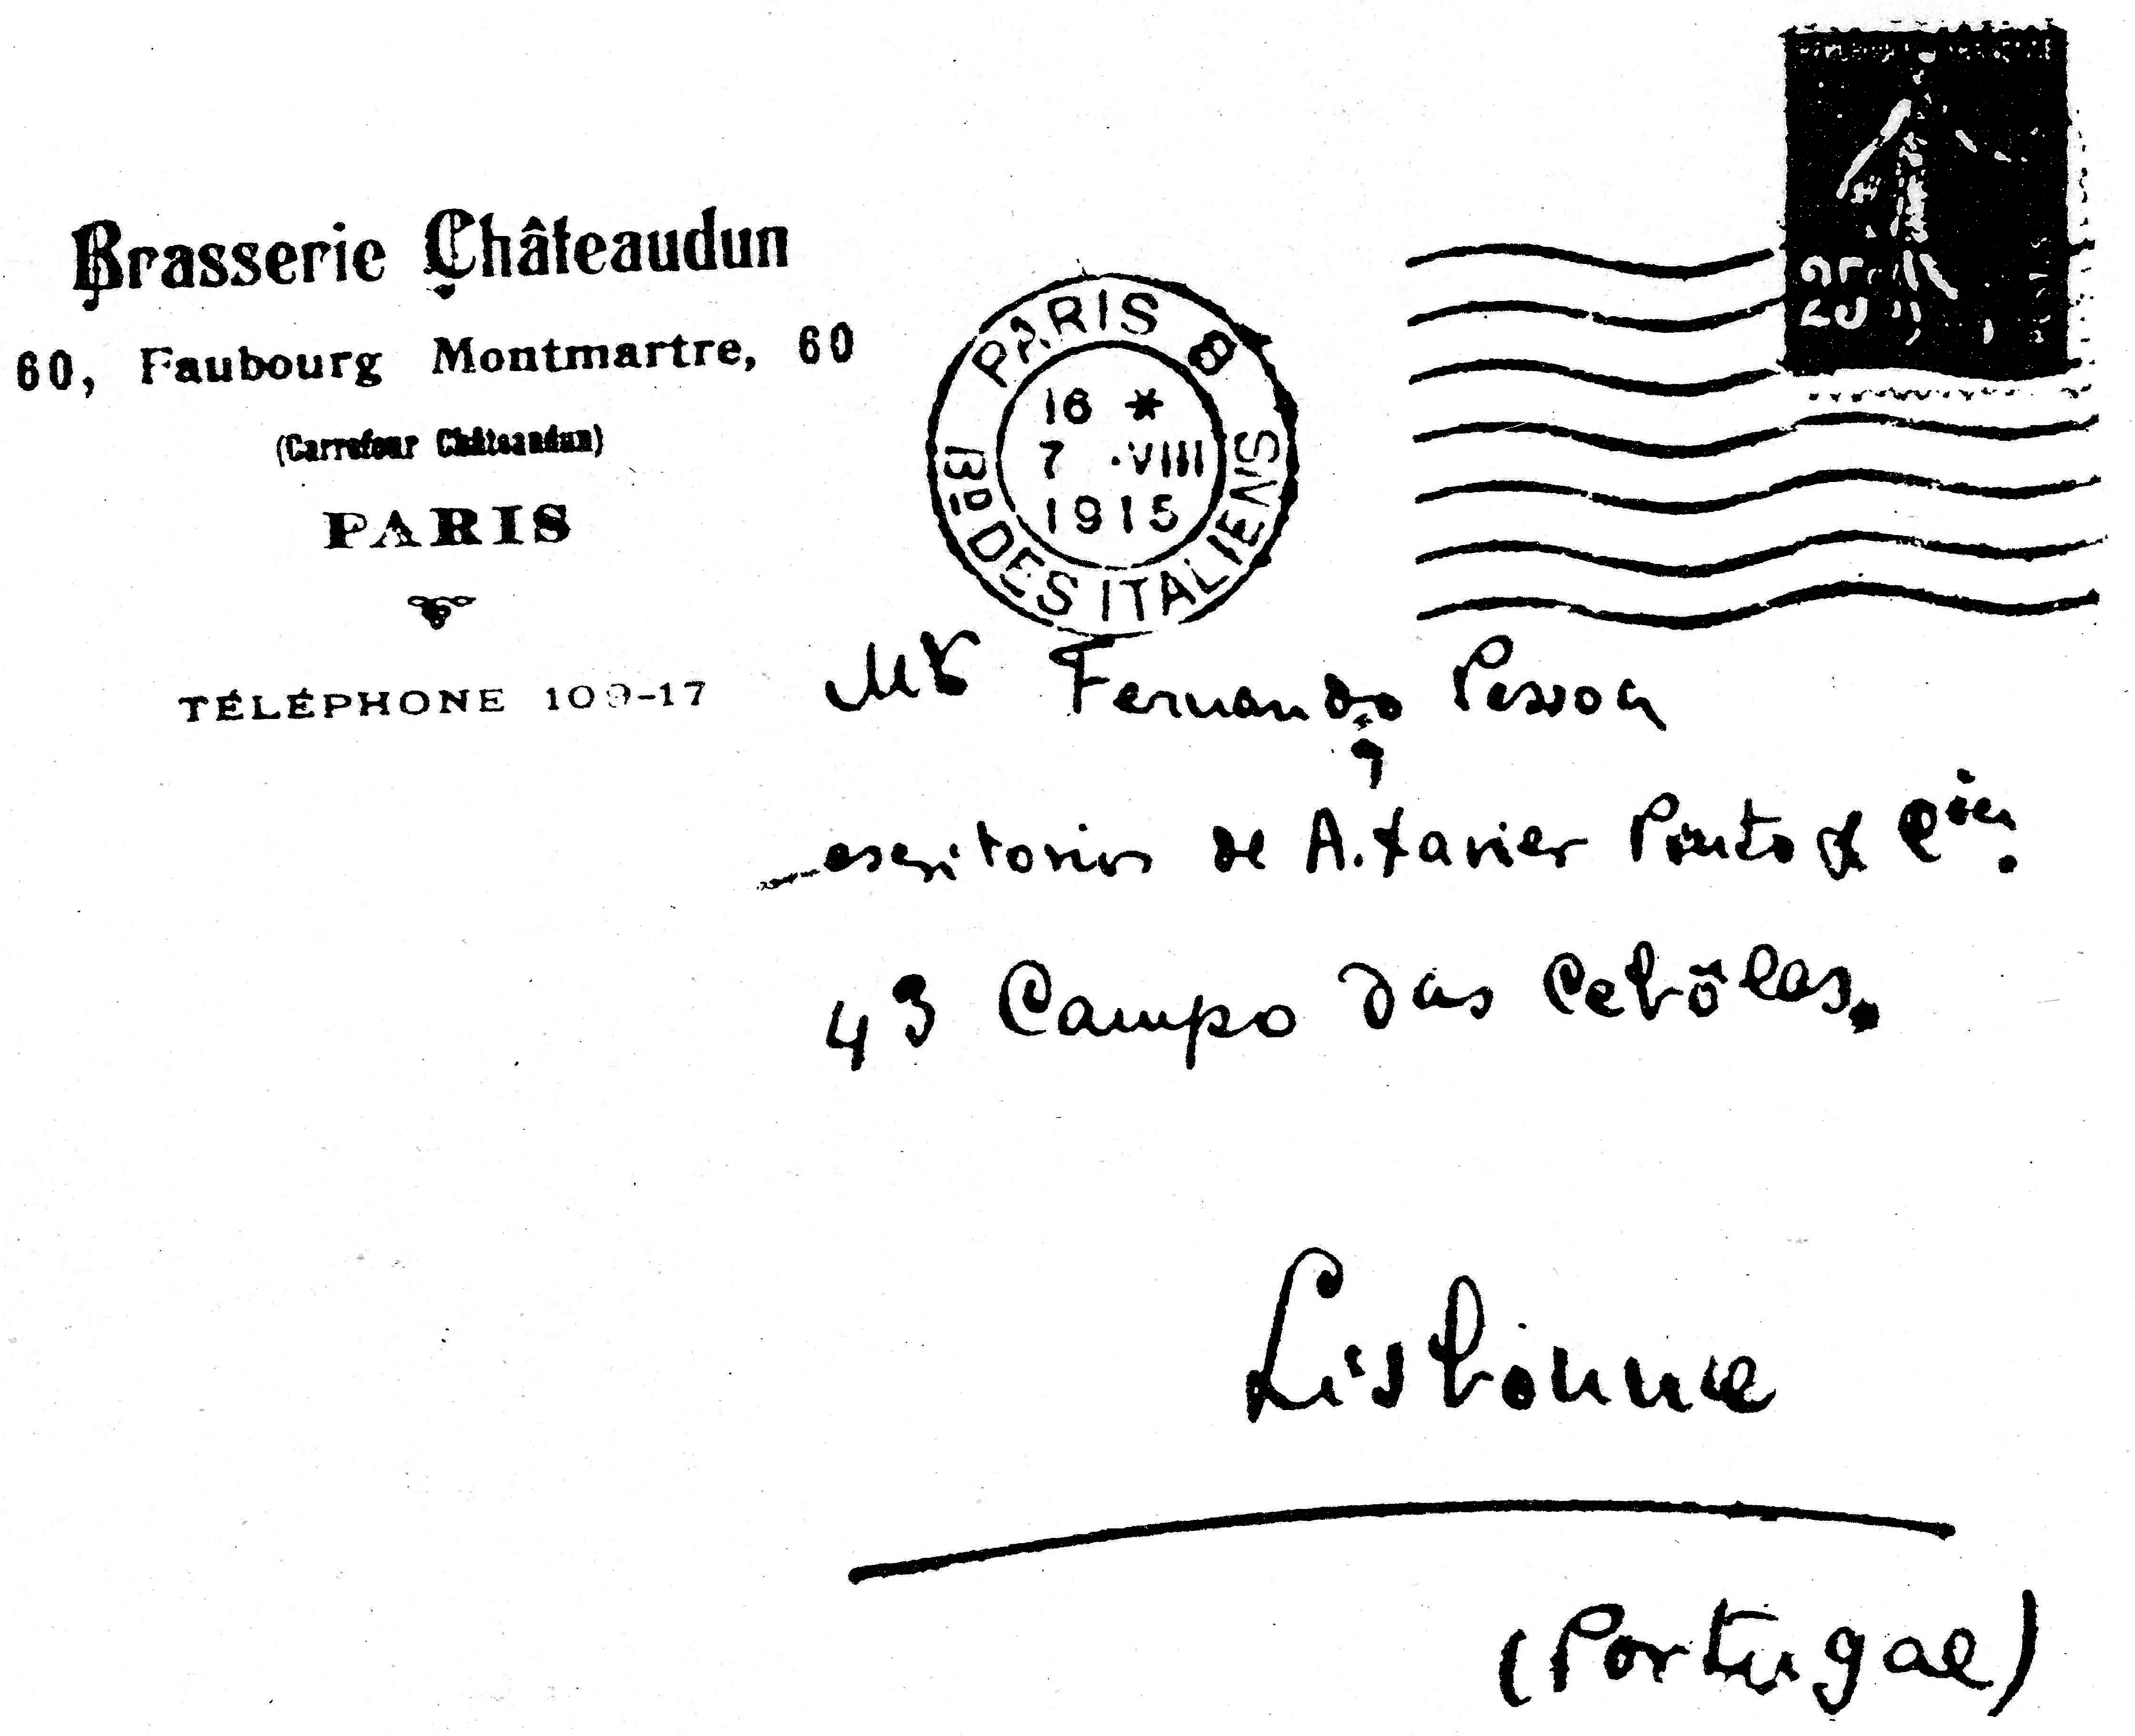 Brasserie Châteaudun
60, Faubourg Montmartre, 60
(Carrefour Châteaudun)
PARIS
TÉLÉPHONE 109-17
PARIS 8
16 *
7 ·VIII
1915
Bd DES ITALIENS
25
Mr Fernando Pessoa
escritorios de A. Xavier Pinto & Cia.
43 Campo das Cebôlas.
Lisbonne
(Portugal)